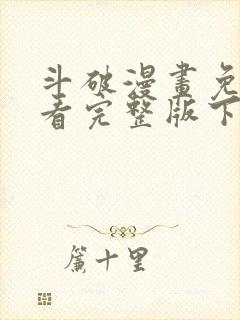 斗破漫畫免
看完整版下
簾十里